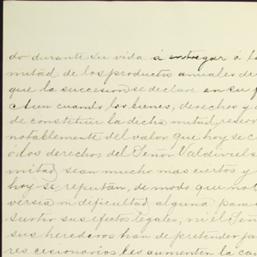 do durante su vida á entregar á l
mitad de los productos anuales de
que la sucesion se declare en su f
Aun cuando los bienes, derechos y a
de constituir la dicha mitad, resu
notablemente del valor que hoy se c
los derechos del Señor Valdivels
mitad, sean mucho mas ciertos y
hoy se reputan, de modo que no t
versia ni dificultad, alguna para
surtir sus efectos legales, ni él Señ
sus herederos han de pretender ja
res cesionarios les aumenten la ca